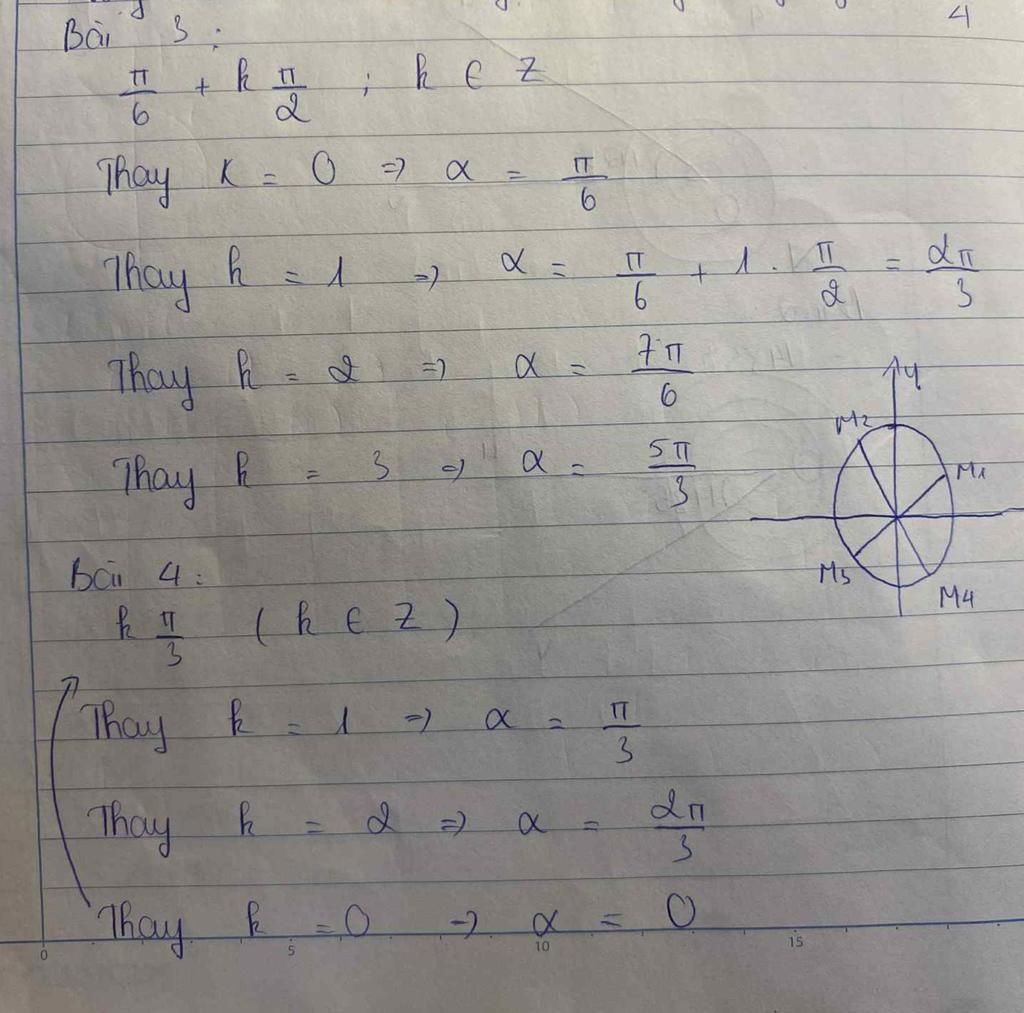 4
Bài 3:
π/6 + k π/2 ; k ∈ Z
Thay k = 0 => α = π/6
Thay k = 1 => α = π/6 + 1 . π/2 = 2π/3
Thay k = 2 => α = 7π/6
Thay k = 3 => α = 5π/3
y
M2
M1
M3
M4
Bài 4:
k π/3 ( k ∈ Z )
Thay k = 1 => α = π/3
Thay k = 2 => α = 2π/3
Thay k = 0 => α = 0
0 5 10 15